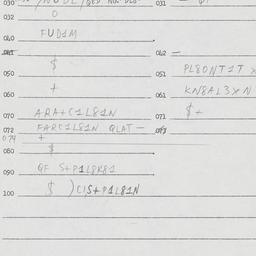 030
031
032 0
040 FUD1M
041
042 —
$
050
051 PL80NT1T
060 +
061 KN8AL3XN
070 ARA+C1L81N
071 $+
072 FARC1L81N QLAT —
073
074 +
080 $
090 QF S+P1L8R81
100 $ )C1S+P1L81N